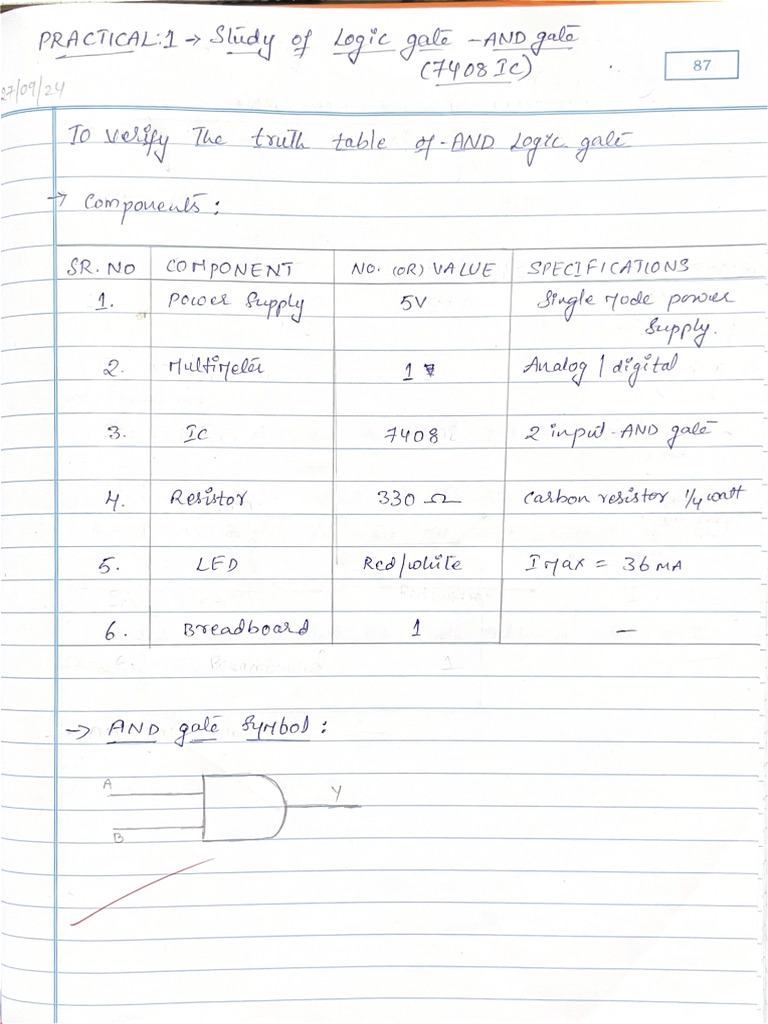 PRACTICAL:1 → Study of Logic gate - AND gate
(7408 IC)
87
27/09/24
To verify The truth table of - AND Logic gate
→ Components:
SR. NO COMPONENT NO. (OR) VALUE SPECIFICATIONS
1. Power Supply 5V Single Mode power
Supply.
2. Multimeter 1 Analog / digital
3. IC 7408 2 input - AND gate
4. Resistor 330 Ω Carbon resistor 1/4 watt
5. LED Red/white IMax = 36 MA
6. Breadboard 1 —
→ AND gate Symbol:
A
Y
B